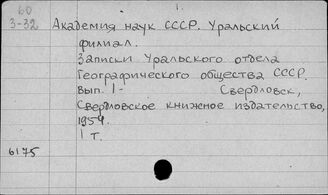 60
3-32
1.
Академия наук СССР. Уральский
филиал.
Записки Уральского отдела
Географического общества СССР.
Вып. 1- Свердловск,
Свердловское книжное издательство,
1954.
1 т.
6175